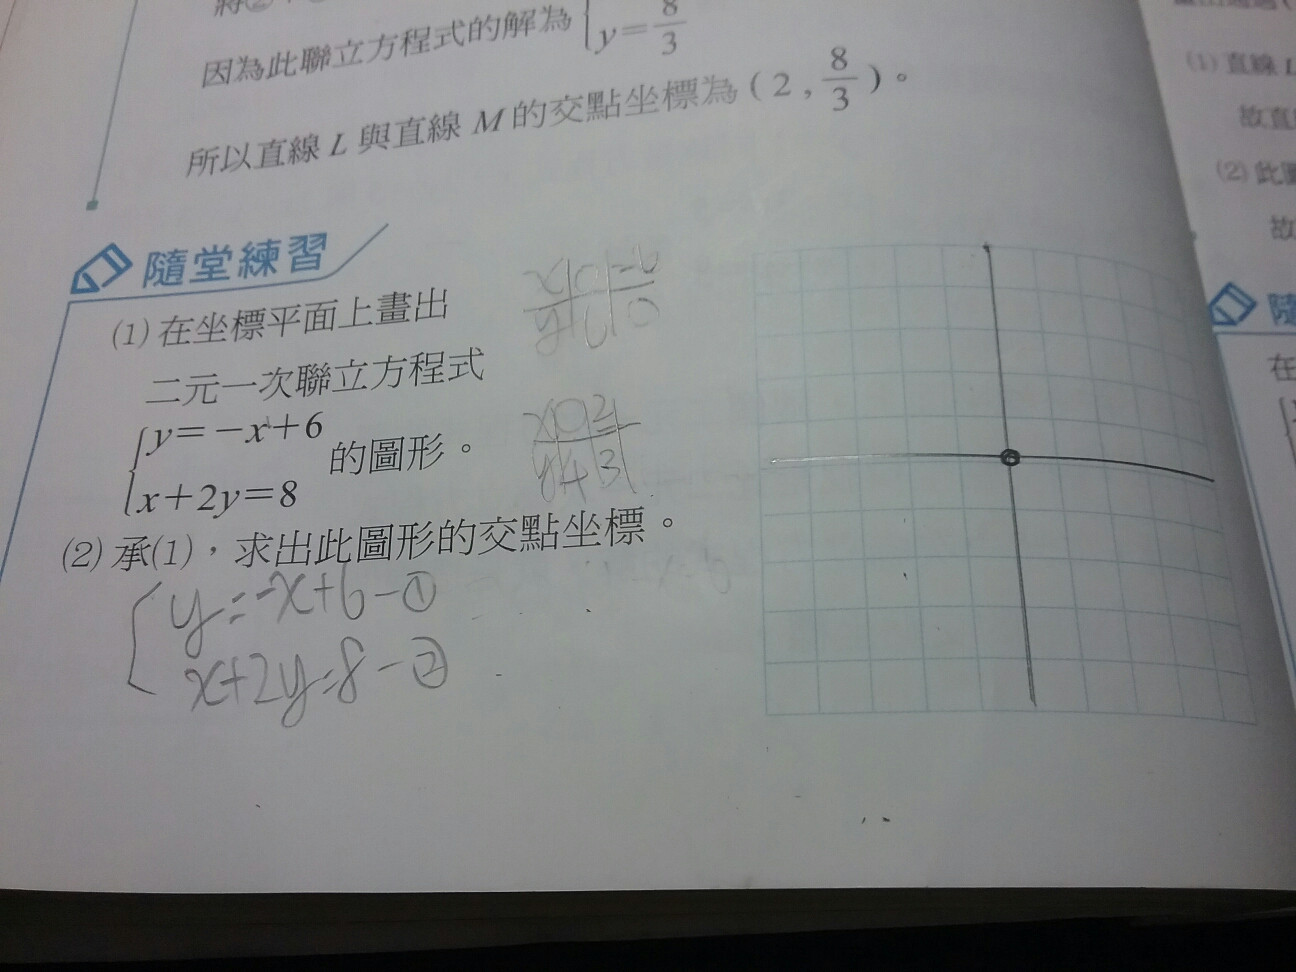 因為此聯立方程式的解為 { y=8/3
所以直線 L 與直線 M 的交點坐標為 ( 2 , 8/3 )。
隨堂練習
(1) 在坐標平面上畫出
二元一次聯立方程式
{ y=-x+6
x+2y=8 的圖形。
(2) 承(1),求出此圖形的交點坐標。
x 0
y 6 0
x 0 2
y 4 3
{ y=-x+6-①
x+2y=8-②
(1) 直線 L
故直
(2) 此圖
故
隨
在